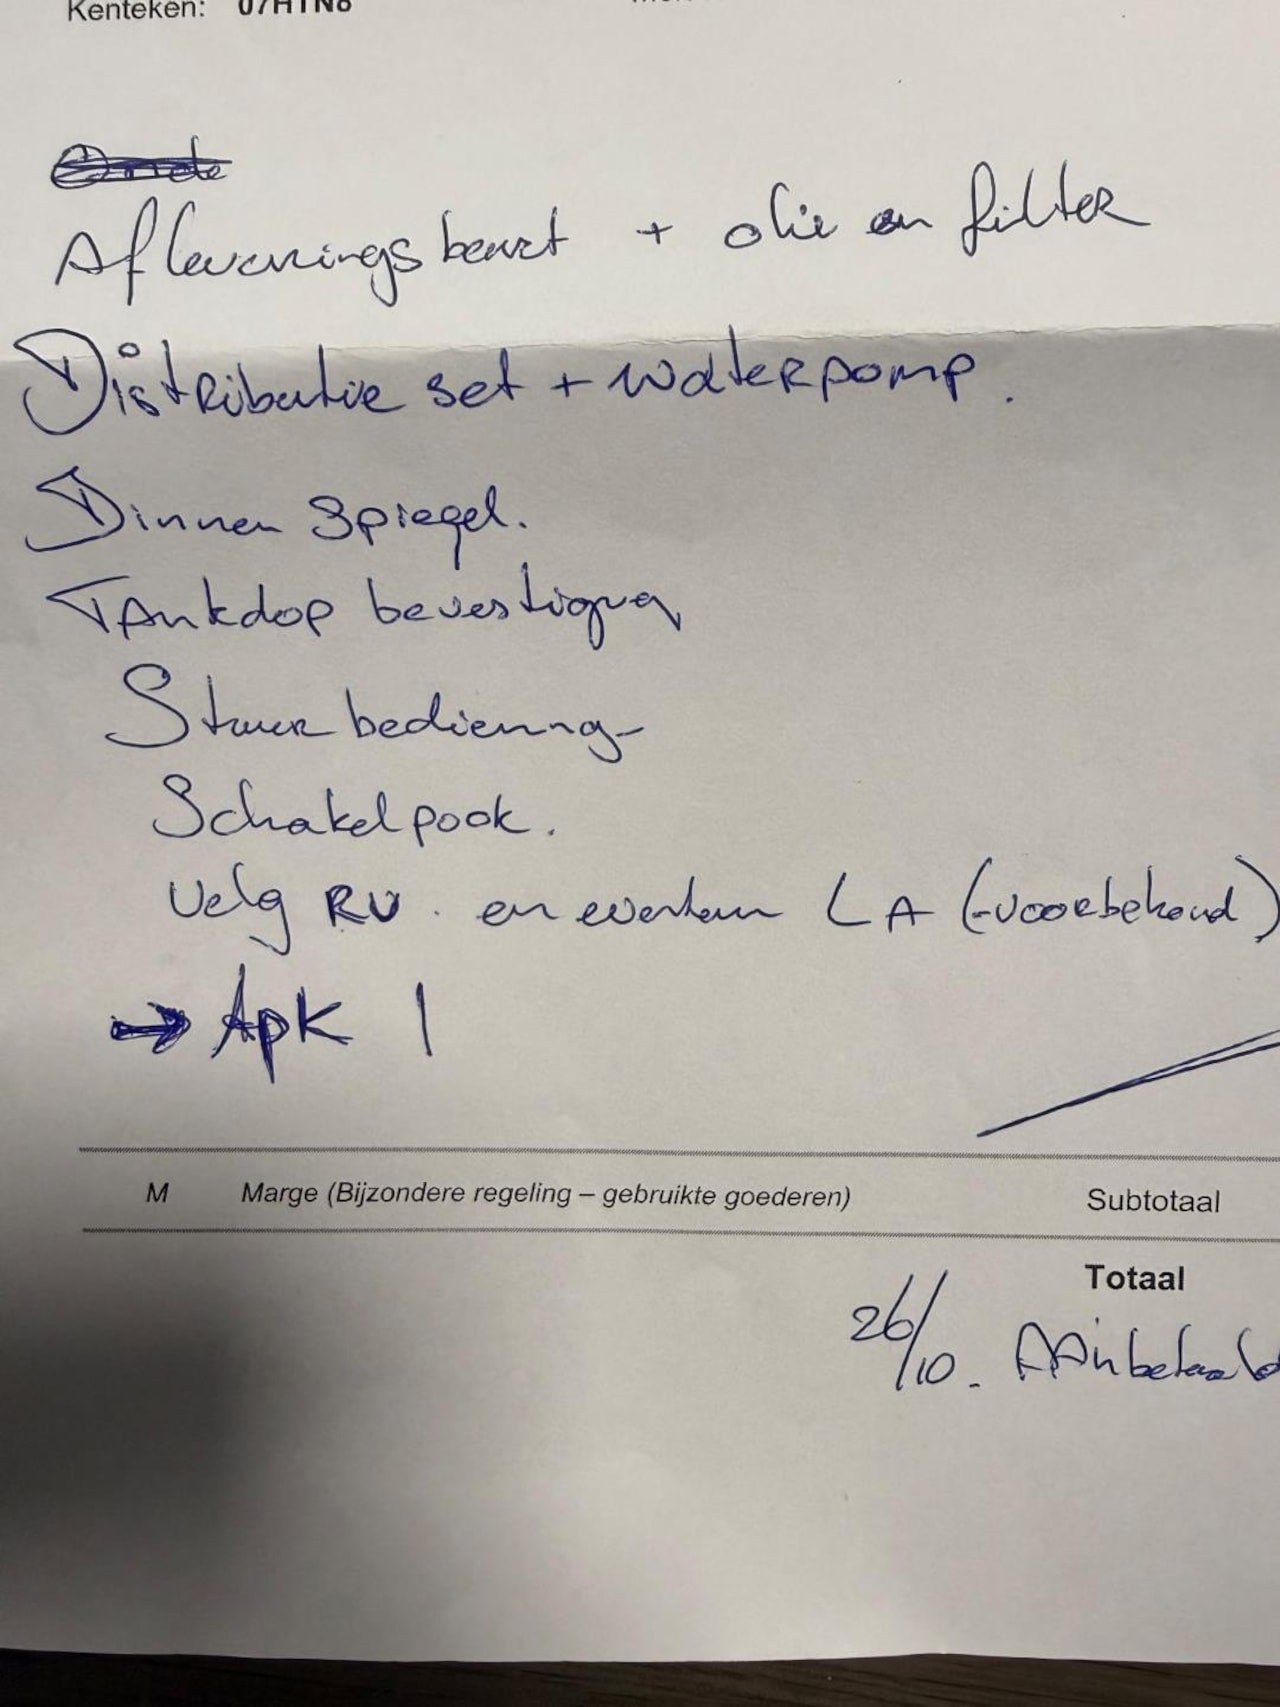 Kenteken: 07HTN8
Afleveringsbeurt + olie en filter
Distributie set + waterpomp.
Binnen spiegel.
Tankdop bevestiging
Stuur bediening
Schakelpook.
Velg RV. en eventueel LA (-voorbehoud)
→ Apk 1
M Marge (Bijzondere regeling – gebruikte goederen) Subtotaal
Totaal
26/10. AAnbetaald